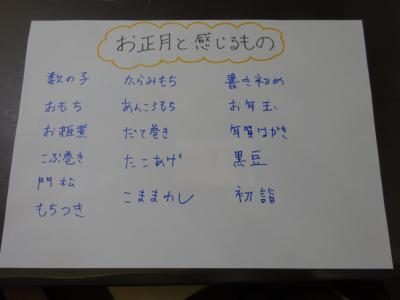 お正月と感じるもの
数の子
おもち
お雑煮
こぶ巻き
門松
もちつき
からみもち
あんころもち
だて巻き
たこあげ
こままわし
書き初め
お年玉
年賀はがき
黒豆
初詣